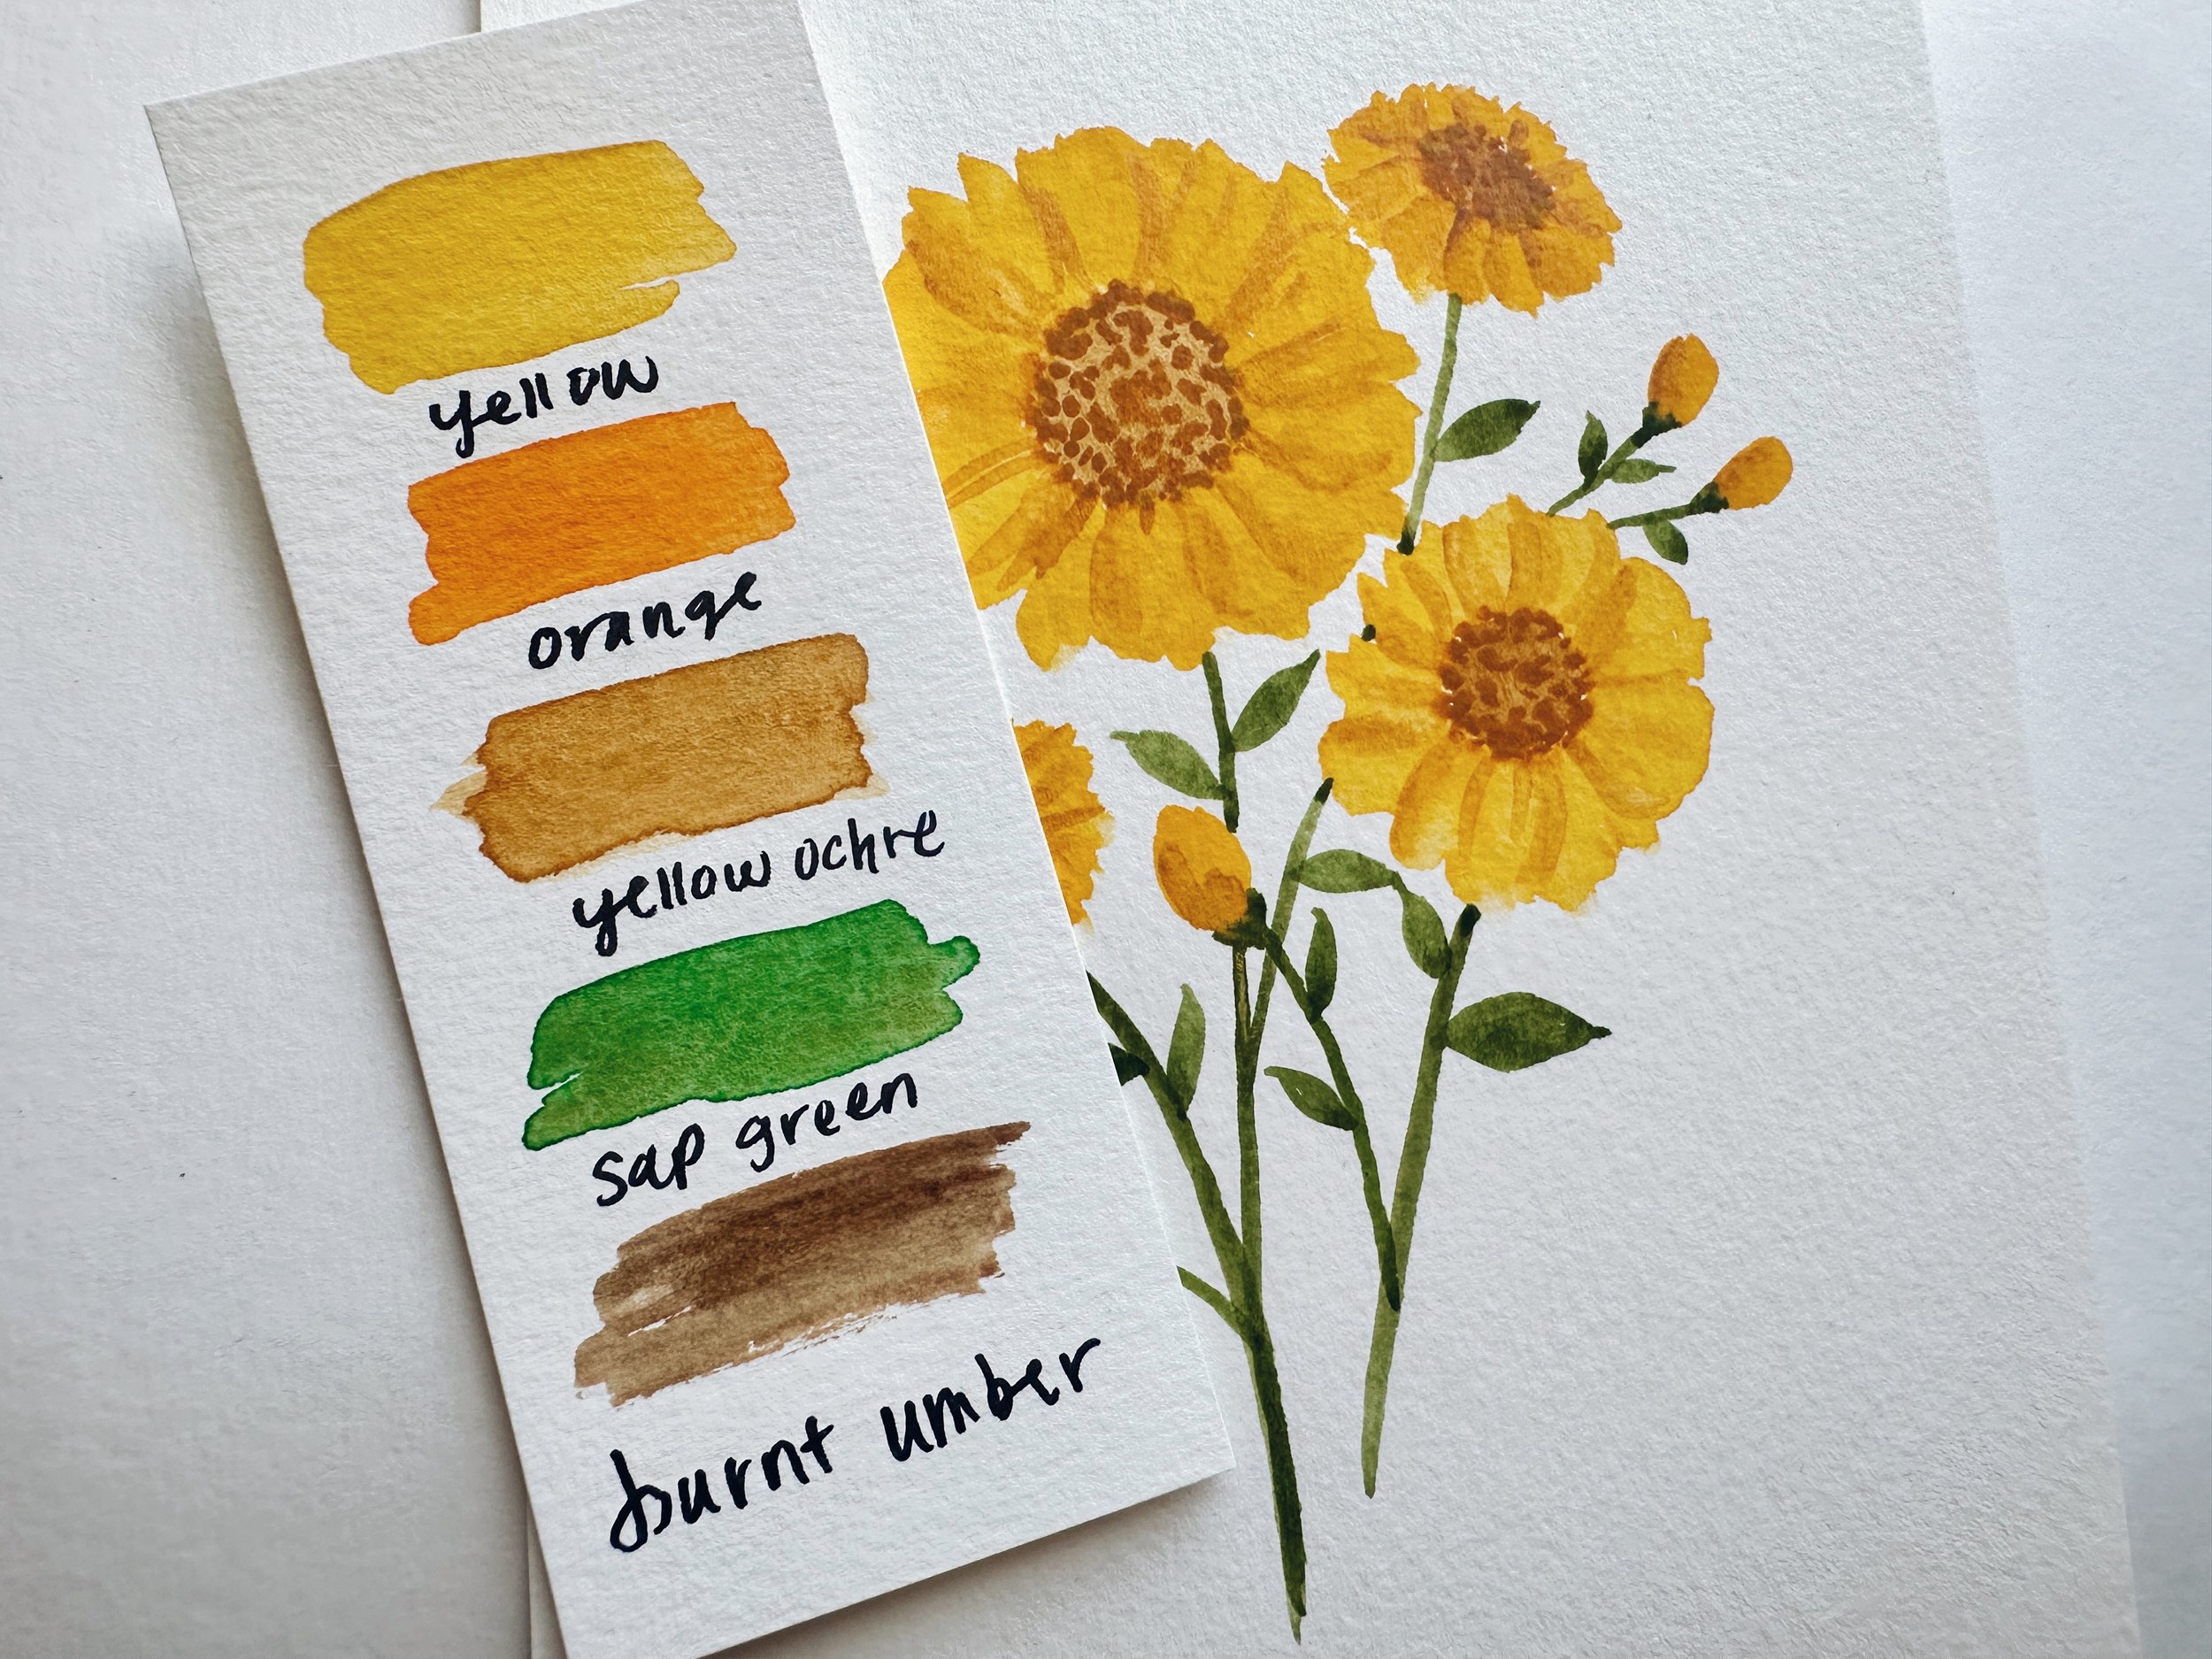 yellow
orange
yellow ochre
sap green
burnt umber